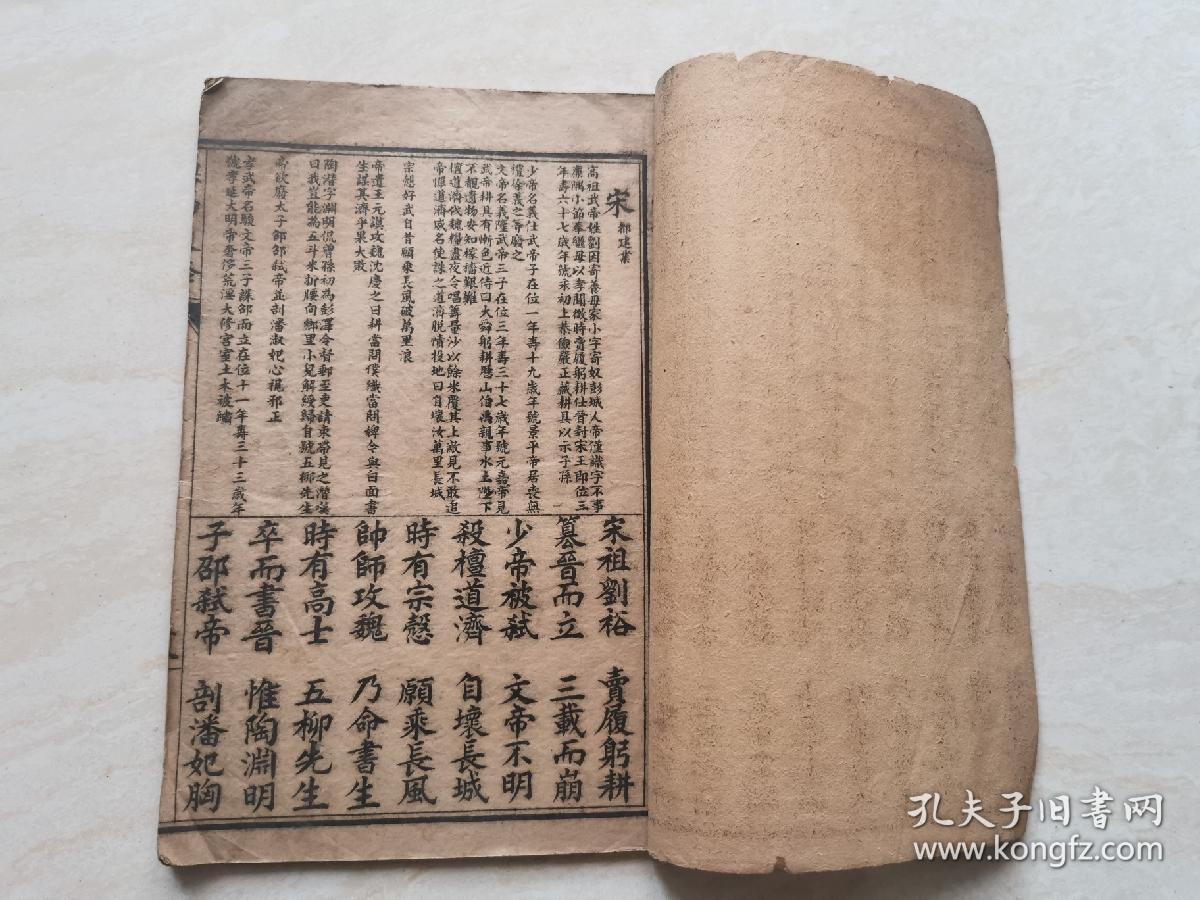 宋 都建業
高祖武帝姓劉因寄養母家小字寄奴彭城人帝僅識字不事
廉隅小節奉繼母以孝聞微時賣履躬耕仕晉封宋王即位三
年壽六十七歲年號永初上恭儉嚴正藏耕具以示子孫
少帝名義仕武帝子在位一年壽十九歲年號景平帝居喪無
禮徐羨之等廢之
文帝名義隆武帝三子在位三年壽三十七歲年號元嘉帝見
武帝耕具有慚色近侍曰大舜躬耕歷山伯禹親事水土陛下
不覩遺物安知稼穡艱難
檀道濟伐魏糧盡夜令唱籌量沙以餘米覆其上敵見不敢追
帝憚道濟威名使誅之道濟脫幘投地曰自壞汝萬里長城
宗慤好武自昔願乘長風破萬里浪
帝遣王元謨攻魏沈慶之曰耕當問僕織當問婢今與白面書
生謀其濟乎果大敗
陶潛字淵明侃曾孫初為彭澤令督郵至吏請束帶見之潛嘆
曰我豈能為五斗米折腰向鄉里小兒解綬歸自號五柳先生
帝欲廢太子邵邵弒帝並剖潘淑妃心視邪正
孝武帝名駿文帝三子誅邵而立在位十一年壽三十三歲年
號孝建大明帝奢侈荒淫大修宮室土木被繡
宋祖劉裕 賣履躬耕
篡晉而立 三載而崩
少帝被弒 文帝不明
殺檀道濟 自壞長城
時有宗慤 願乘長風
帥師攻魏 乃命書生
時有高士 五柳先生
卒而書晉 惟陶淵明
子邵弒帝 剖潘妃胸
孔夫子旧书网
www.kongfz.com